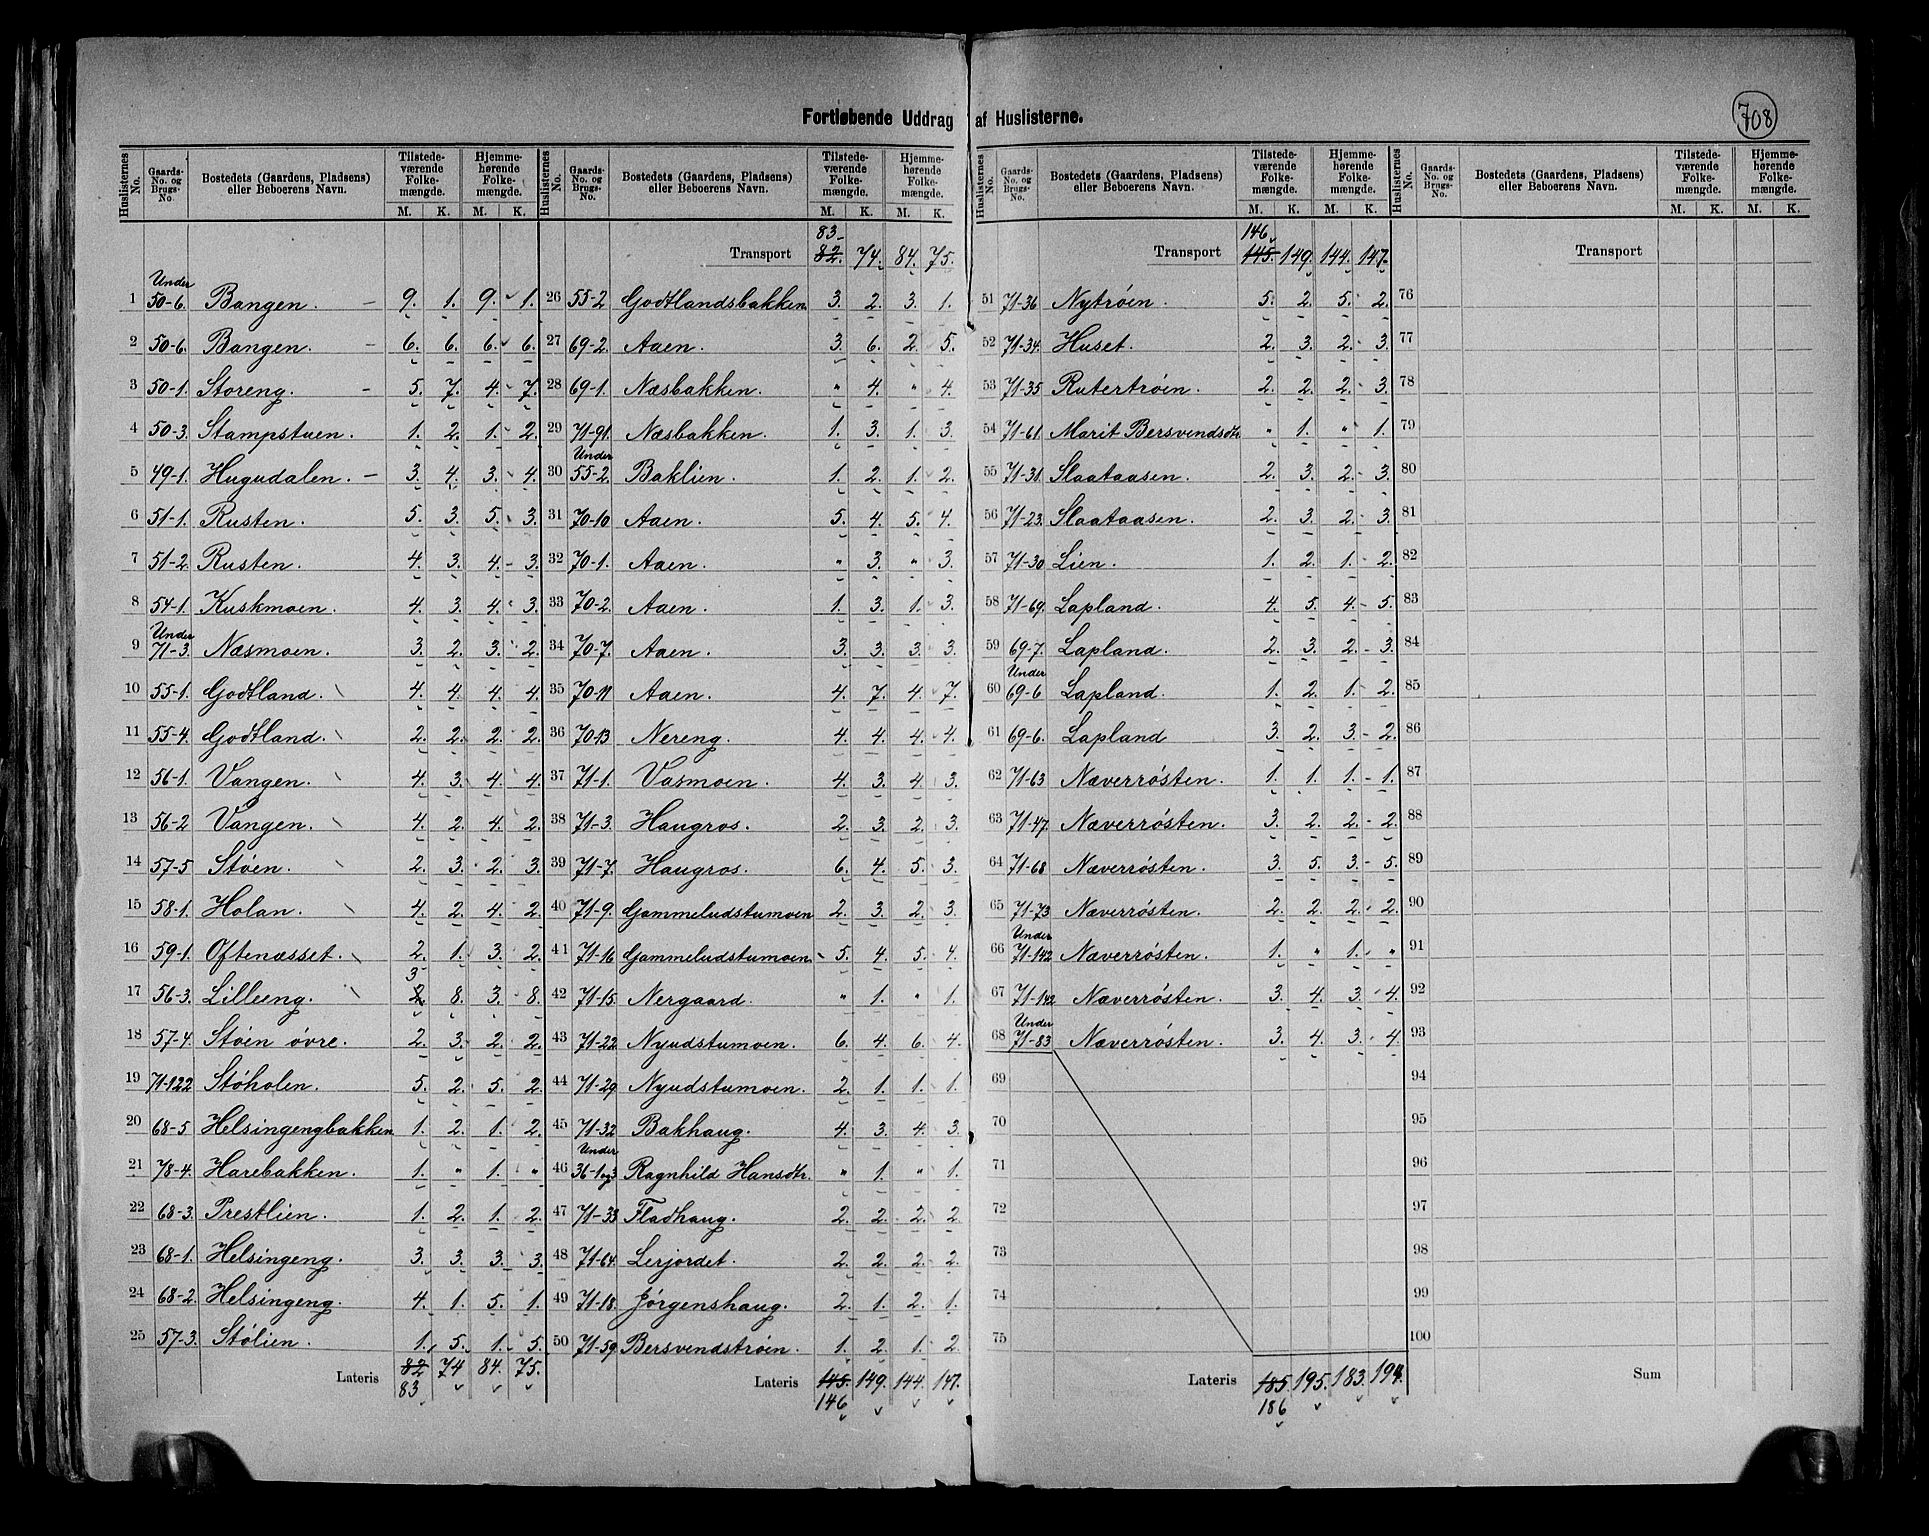 Fortløbende Uddrag af Huslisterne.
708
Huslisternes No. Gaards-No. og Brugs-No. Bostedets (Gaardens, Pladsens) eller Beboerens Navn. Tilstedeværende Folkemængde. M. K. Hjemmehørende Folkemængde. M. K.
1 Under 50-6. Bangen. — 9. 1. 9. 1.
2 50-6. Bangen. — 6. 6. 6. 6.
3 50-1. Storeng. — 5. 7. 4. 7.
4 50-3. Stampstuen. 1. 2. 1. 2.
5 49-1. Hugudalen. — 3. 4. 3. 4.
6 51-1. Rusten. 5. 3. 5. 3.
7 51-2. Rusten. 4. 3. 4. 3.
8 54-1. Kuskmoen. 4. 3. 4. 3.
9 Under 71-3. Næsmoen. 3. 2. 3. 2.
10 55-1. Godtland. 4. 4. 4. 4.
11 55-4. Godtland. 2. 2. 2. 2.
12 56-1. Vangen. 4. 3. 4. 4.
13 56-2 Vangen. 4. 2. 4. 2.
14 57-5 Støen. 2. 3. 2. 3.
15 58-1. Holan. 4. 2. 4. 2.
16 59-1. Oftenæsset. 2. 1. 3. 2.
17 56-3. Lilleeng. 3 2. 8. 3. 8.
18 57-4. Støen øvre. 2. 3. 2. 2.
19 71-122 Støholen. 5. 2. 5. 2.
20 68-5 Helsingengbakken 1. 2. 1. 2.
21 78-4. Harebakken. 1. " 1. "
22 68-3. Prestlien. 1. 2. 1. 2.
23 68-1. Helsingeng. 3. 3. 3. 3.
24 68-2. Helsingeng. 4. 1. 5. 1.
25 57-3. Stølien. 1. 5. 1. 5.
Lateris 82 74 84. 75.
83
Huslisternes No. Gaards-No. og Brugs-No. Bostedets (Gaardens, Pladsens) eller Beboerens Navn. Tilstedeværende Folkemængde. M. K. Hjemmehørende Folkemængde. M. K.
83
Transport 82. 74. 84. 75.
26 55-2 Godtlandsbakken 3. 2. 3. 1.
27 69-2. Aaen. 3. 6. 2. 5.
28 69-1. Næsbakken. " 4. " 4.
29 71-91. Næsbakken. 1. 3. 1. 3.
30 Under 55-2. Baklien. 1. 2. 1. 2.
31 70-10 Aaen. 5. 4. 5. 4.
32 70-1. Aaen. " 3. " 3.
33 70-2. Aaen. 1. 3. 1. 3.
34 70-7. Aaen. 3. 3. 3. 3.
35 70-11 Aaen. 4. 7. 4. 7.
36 70-13 Nereng. 4. 4. 4. 4.
37 71-1. Vasmoen. 4. 3. 4. 3.
38 71-3. Haugros. 2. 3. 2. 3.
39 71-7. Haugros. 6. 4. 5. 3.
40 71-9. Gammeludstumoen 2. 3. 2. 3.
41 71-16 Gammeludstumoen 5. 4. 5. 4.
42 71-15. Nergaard. " 1. " 1.
43 71-22 Nyudstumoen. 6. 4. 6. 4.
44 71-29 Nyudstumoen. 2. 1. 1. 1.
45 71-32 Bakhaug. 4. 3. 4. 3.
46 Under 36-1og3 Ragnhild Hansdtr. " 1. " 1.
47 71-33 Fladhaug. 2. 2. 2. 2
48 71-64. Lerjordet. 2. 2. 2. 2.
49 71-18. Jørgenshaug. 2. 1. 2. 1.
50 71-59 Bersvendstrøen. 1. 2. 1. 2
Lateris 145. 149. 144. 147.
146
Huslisternes No. Gaards-No. og Brugs-No. Bostedets (Gaardens, Pladsens) eller Beboerens Navn. Tilstedeværende Folkemængde. M. K. Hjemmehørende Folkemængde. M. K.
146
Transport 145. 149. 144. 147.
51 71-36 Nytrøen. 5. 2. 5. 2.
52 71-34. Huset. 2. 3. 2. 3.
53 71-35 Rutertrøen. 2. 2. 2. 3.
54 71-61. Marit Bersvendsdtr. " 1. " 1.
55 71-31. Slaataasen. 2. 3. 2. 3.
56 71-23. Slaataasen. 2. 3. 2. 3.
57 71-30 Lien. 1. 2. 1. 2.
58 71-69. Lapland. 4. 5. 4. 5.
59 69-7. Lapland. 2. 3. 2. 3.
60 Under 69-6 Lapland. 1. 2. 1. 2.
61 69-6. Lapland 3. 2. 3. 2.
62 71-63 Næverrøsten. 1. 1. 1. 1.
63 71-47. Næverrøsten. 3. 2. 2. 2.
64 71-68 Næverrøsten. 3. 5. 3. 5.
65 71-73 Næverrøsten. 2. 2. 2. 2.
66 Under 71-142 Næverrøsten. 1. " 1. "
67 71-142 Næverrøsten. 3. 4. 3. 4.
68 Under 71-83 Næverrøsten. 3. 4. 3. 4.
69
70
71
72
73
74
75
Lateris 185. 195. 183. 194.
186
Huslisternes No. Gaards-No. og Brugs-No. Bostedets (Gaardens, Pladsens) eller Beboerens Navn. Tilstedeværende Folkemængde. M. K. Hjemmehørende Folkemængde. M. K.
Transport
76
77
78
79
80
81
82
83
84
85
86
87
88
89
90
91
92
93
94
95
96
97
98
99
100
Sum